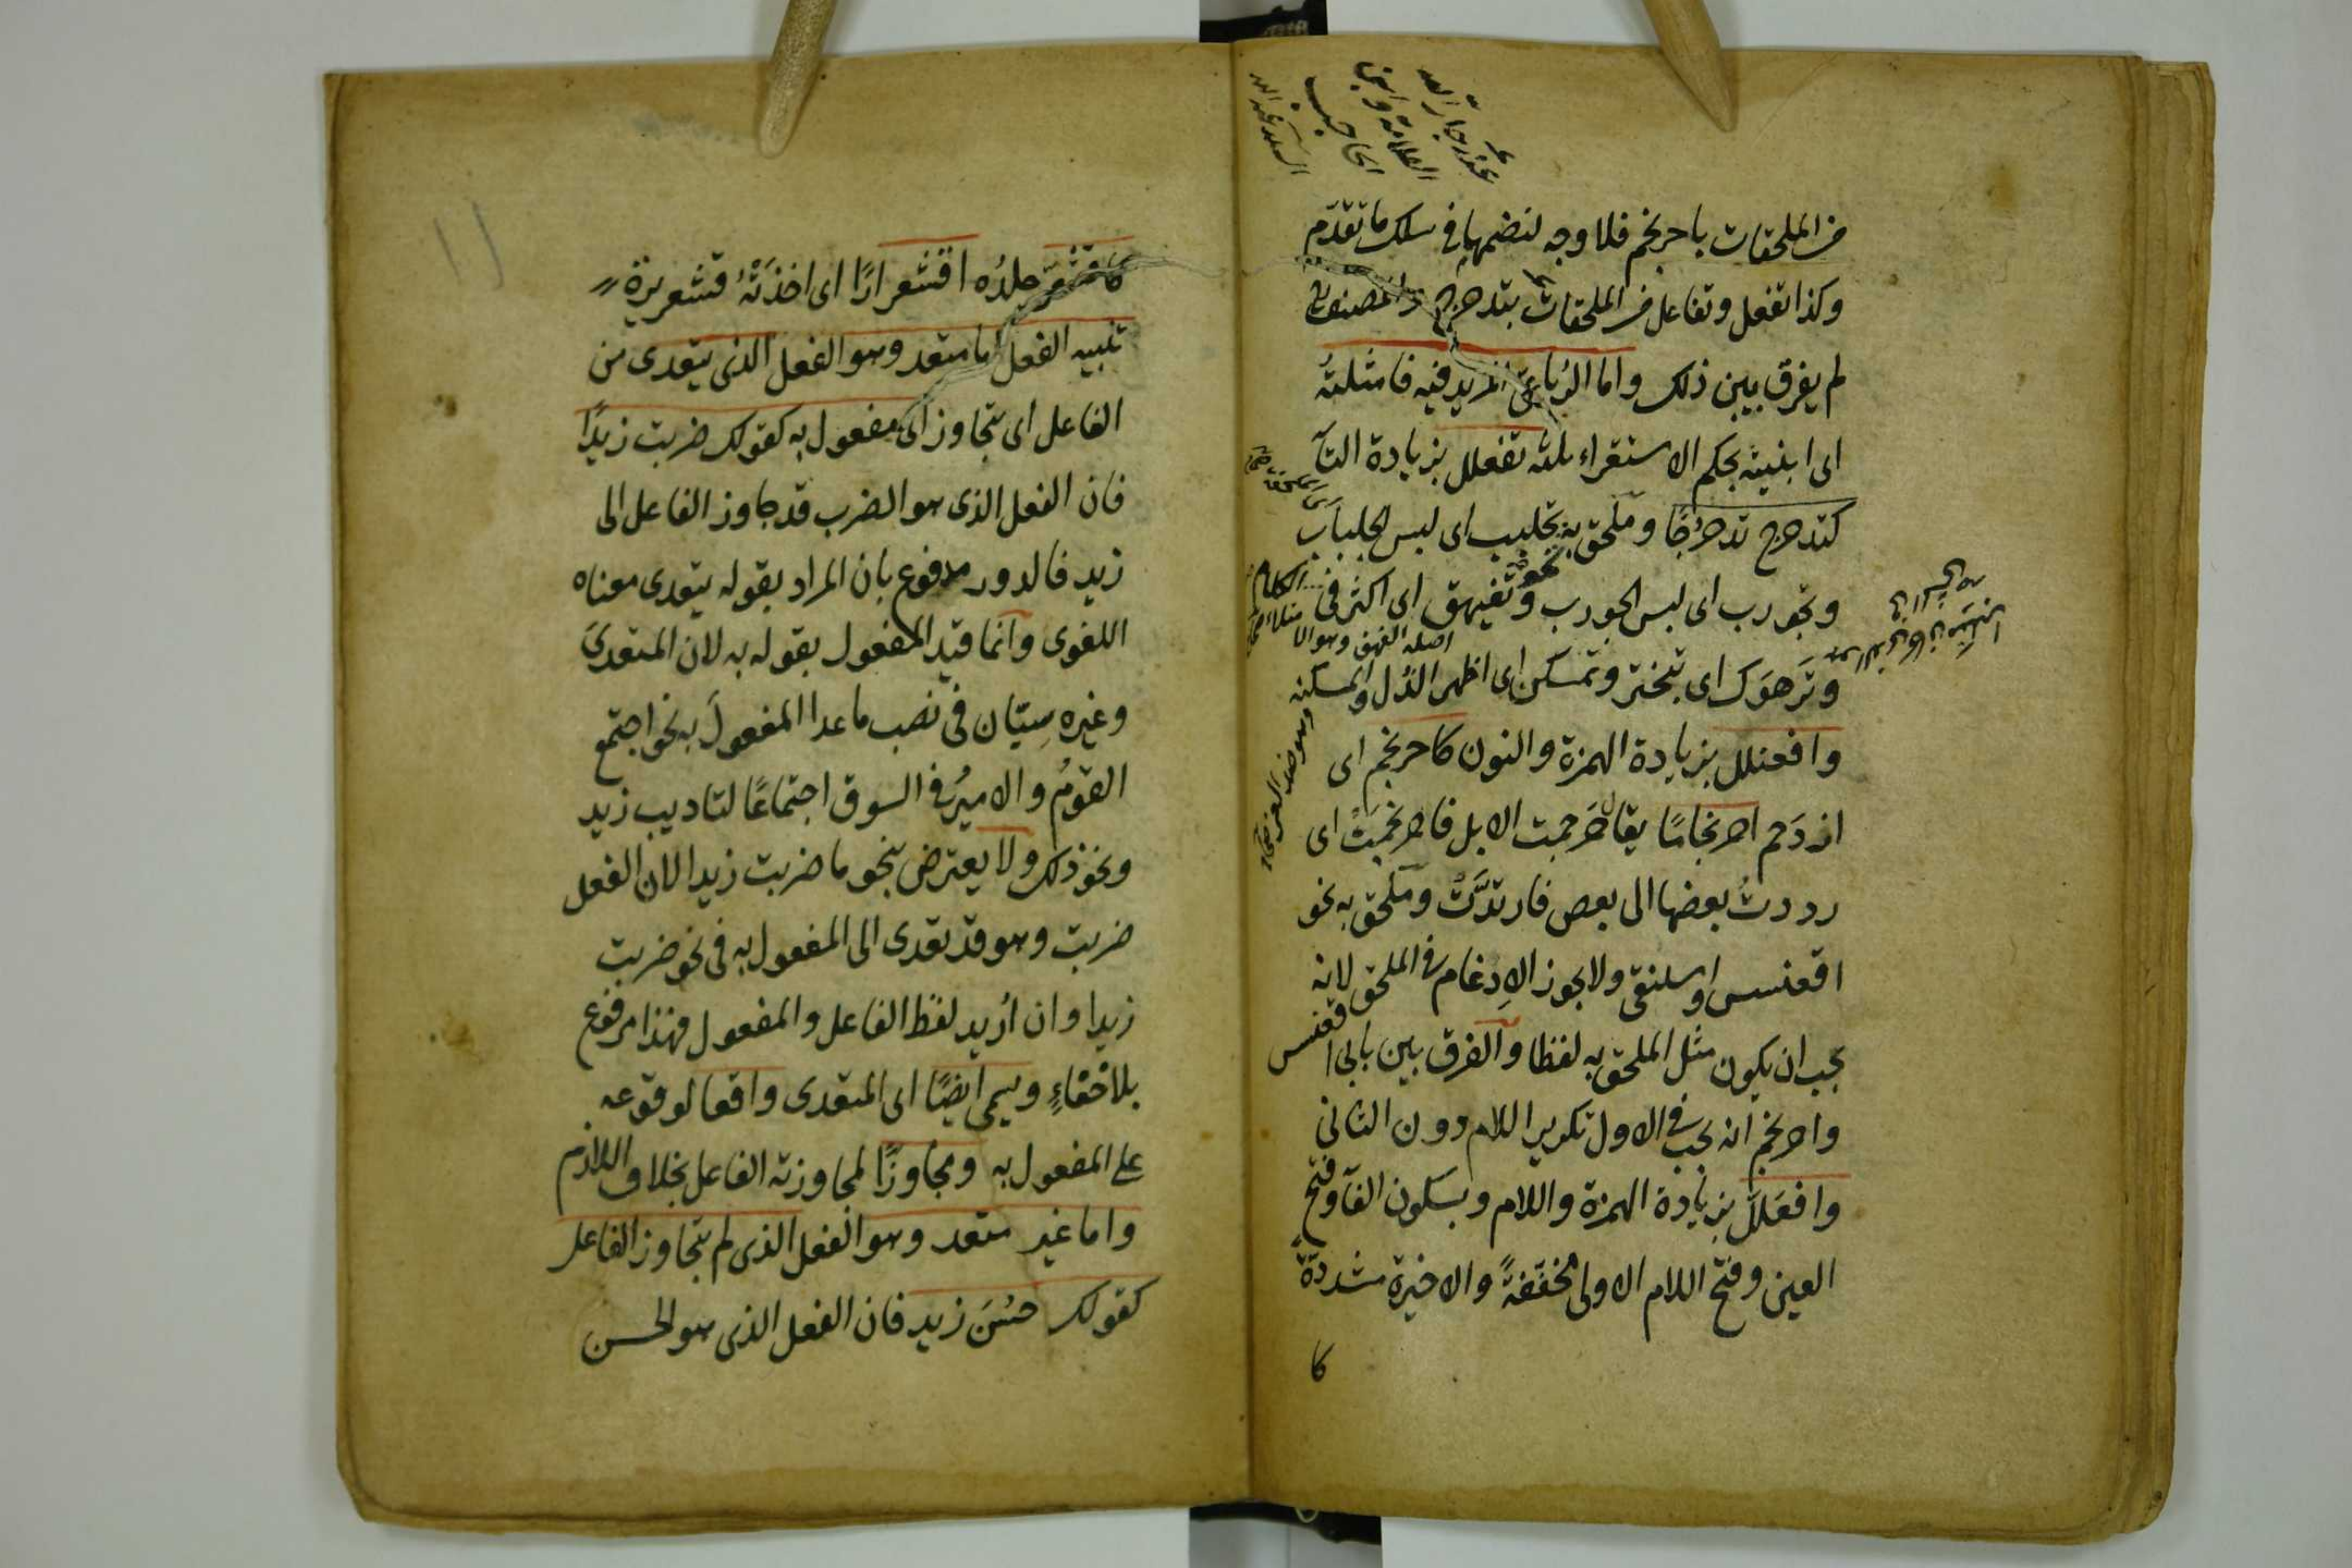 من الملحقات باحرنجم فلا وجه لنضمها فى سلك ما تقدم
وكذا تفعل وتفاعل من الملحقات بتدحرج والمصنف
لم يفرق بين ذلك واما الرباعىّ المزيد فيه فامثلتُه
اى ابنيته بحكم الاستقراء ثلثه تفعلل بزيادة التآ
كتدحرج تدحرُجًا وملحق به نحو تجلبب اى لبس الجلباب
وتجورب اى لبس الجورب وتفيهق اى اكثر فى الكلام
وتَرَهوَك اى تبختر وتمسكن اى اظهر الذل والمسكنه
وافعنلل بزيادة الهمزة والنون كاحرنجم اى
ازدحم احرنجامًا يقال حَرجمت الابل فاحرنجمت اى
رددتُ بعضها الى بعض فارتدَّت وملحق به نحو
اقعنسس واسلنقى ولا يجوز الاِدغام فى الملحق لانه
يجب ان يكون مثل الملحق به لفظا والفرق بين بابى اقعنسس
واحرنجم انه يجب فى الاول تكرير اللام دون الثانى
وافعَلَلَّ بزيادة الهمزة واللام وبسكون الفآ وفتح
العين وفتح اللام الاولى مخففةً والاخيرة مشددةً
كا
عند جار الله
العلامة وابن
الحاجب
اصله الفهق وهو الامتلاء
١١
كاقشعرّ جلدُه اقشعرارًا اى اخذَتْهُ قشعريرة
تنبيه الفعل اما متعد وهو الفعل الذى يتعدى من
الفاعل اى يتجاوز الى مفعول به كقولك ضربت زيدًا
فان الفعل الذى هو الضرب قد جاوز الفاعل الى
زيد فالدور مدفوع بان المراد بقوله يتعدى معناه
اللغوى وانما قيد المفعول بقوله به لان المتعدىَ
وغيره سِيّان فى نصب ما عدا المفعولَ به نحو اجتمع
القومُ والاميرُ فى السوق اجتماعًا لتاديب زيد
ونحو ذلك ولا يعترض بنحو ما ضربت زيدا لان الفعل
ضربت وهو قد تعدى الى المفعول به فى نحو ضربت
زيدا وان اُريد لفظ الفاعل والمفعول فهذا مرفوع
بلا خفاءٍ ويسمى ايضًا اى المتعدى واقعا لوقوعه
على المفعول به ومجاوزًا لمجاوزته الفاعل بخلاف اللازم
واما غير متعد وهو الفعل الذى لم يتجاوز الفاعل
كقولك حسُنَ زيد فان الفعل الذى هو الحسن